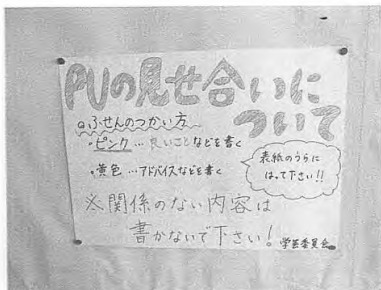 PUの見せ合いに
ついて
◎ふせんのつかい方
・ピンク…良いことなどを書く
・黄色…アドバイスなどを書く
表紙のうらに
はって下さい!!
※関係のない内容は
書かないで下さい!
学芸委員会